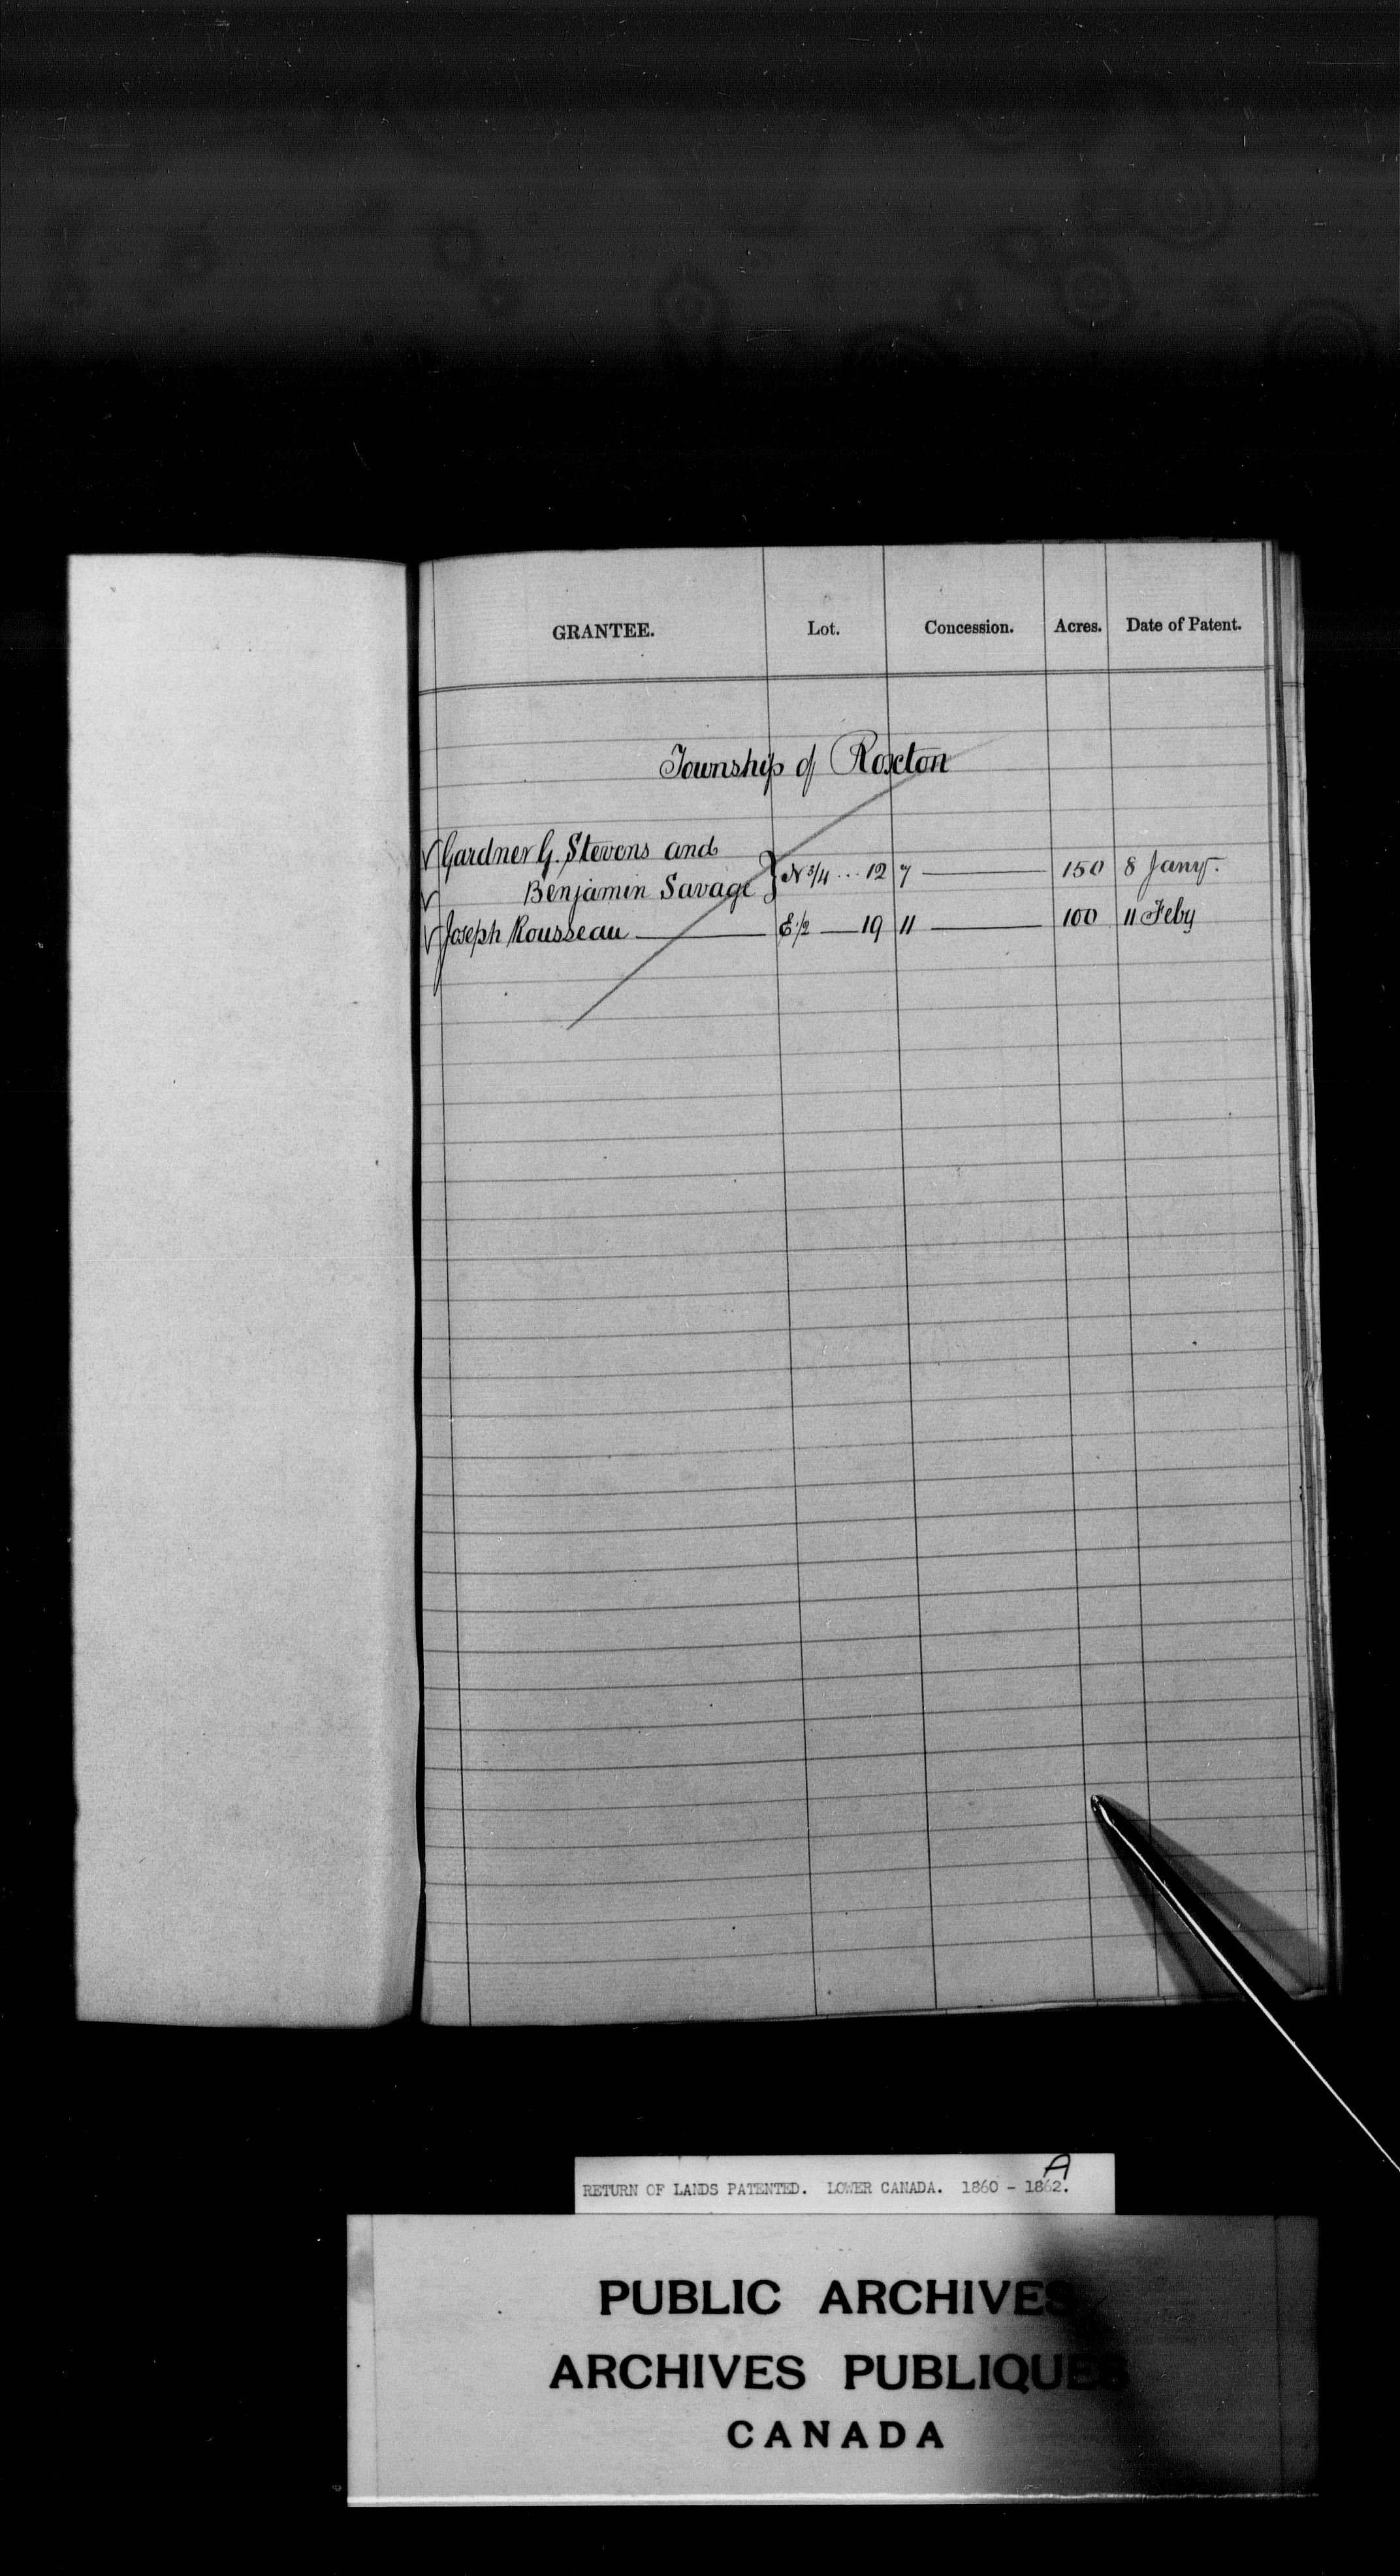 GRANTEE. Lot. Concession. Acres. Date of Patent.
Township of Roxton
Gardner G. Stevens and
Benjamin Savage } N 3/4 ... 12 7 — 150 8 Jany.
Joseph Rousseau — E 1/2 — 19 11 — 100 11 Feby
A
RETURN OF LANDS PATENTED. LOWER CANADA. 1860 - 1862.
PUBLIC ARCHIVES
ARCHIVES PUBLIQUES
CANADA